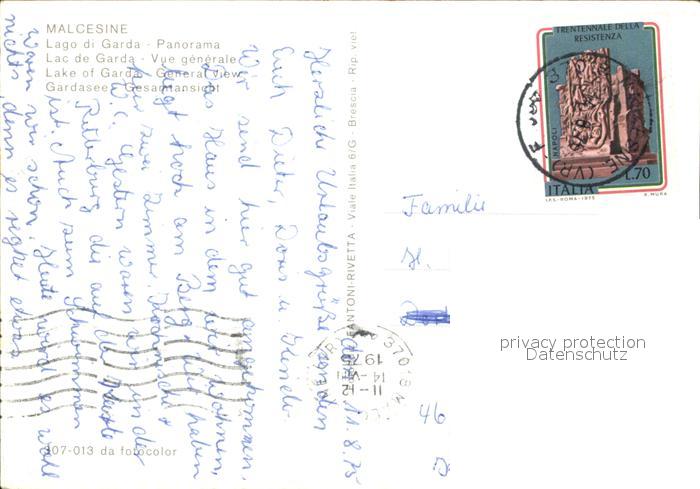 MALCESINE
Lago di Garda - Panorama
Lac de Garda - Vue générale
Lake of Garda - General view
Gardasee - Gesamtansicht
TRENTENNALE DELLA
RESISTENZA
NAPOLI
L.70
ITALIA
I.P.S.-ROMA-1975
E. MURA
Herzliche Urlaubsgrüße senden
Euch Dieter, Doris u.
11.8.75
Wir sind hier gut angekommen.
Das Haus in dem wir wohnen,
liegt hoch am Berg. Wir haben
hier zwei Zimmer,
W.C. Gestern waren wir in der
Ritterburg die auf der
ist. Auch zum Schwimmen
waren wir schon. Heute wird es wohl
nichts, denn es regnet etwas.
FANTONI-RIVETTA - Viale Italia 6/G - Brescia - Rip. viet
37018
11-12
14-VIII
1975
Familie
H.
46
307-013 da fotocolor
privacy protection
Datenschutz